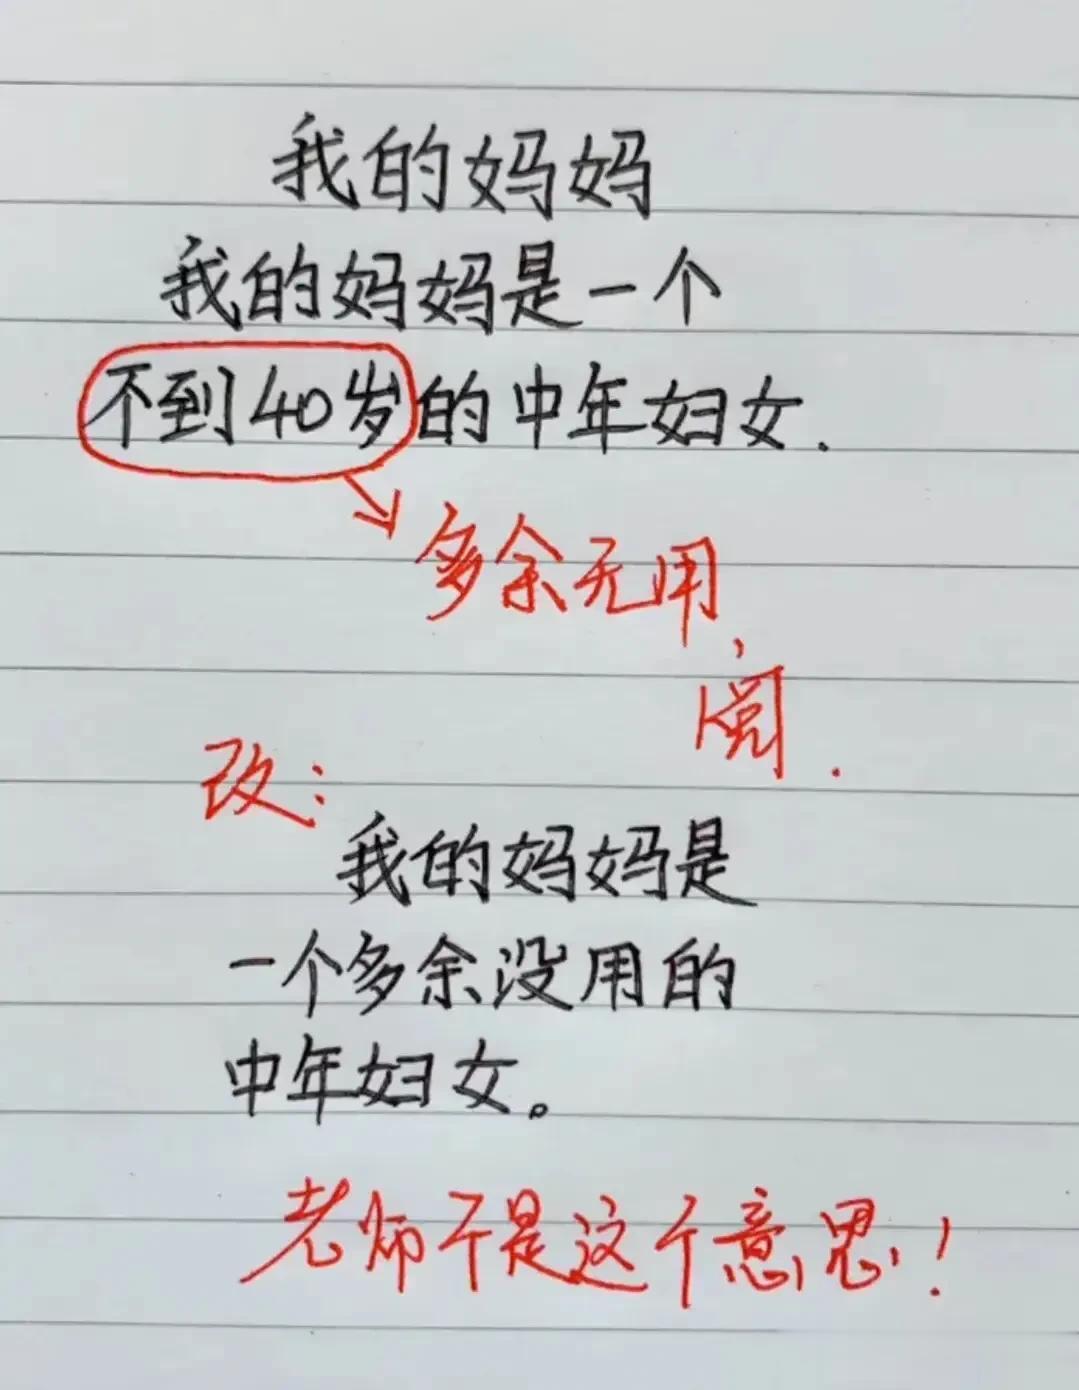 我的妈妈
我的妈妈是一个
不到40岁的中年妇女.
多余无用,
阅.
改:
我的妈妈是
一个多余没用的
中年妇女。
老师不是这个意思!